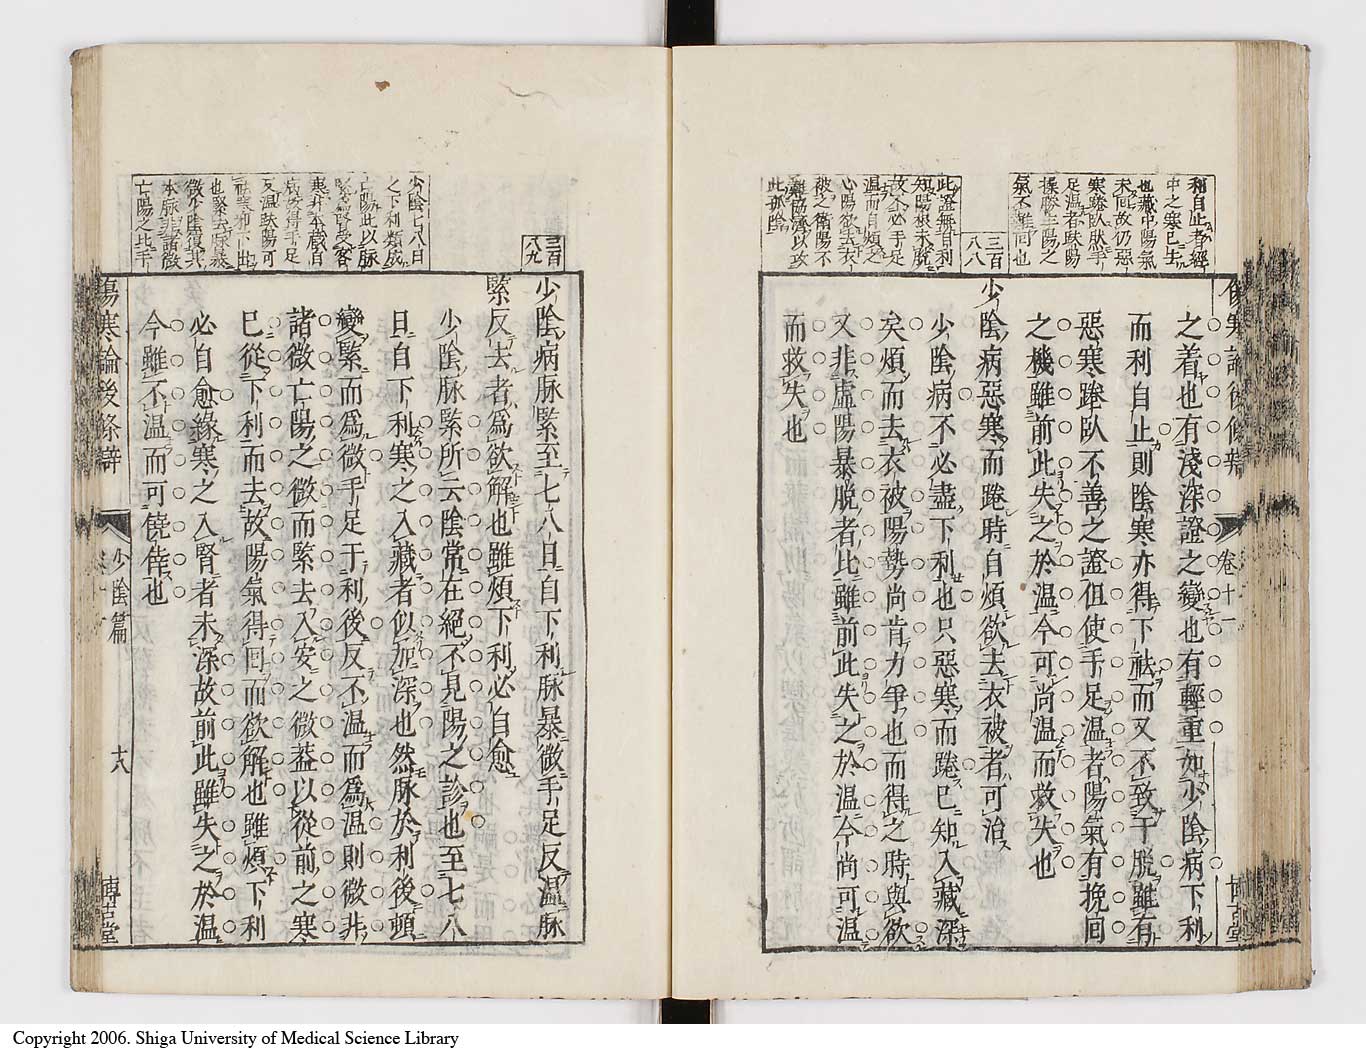 利自止者經
中之寒已去
也藏中陽氣
未回故仍惡
寒踡臥然手
足溫者陽
操勝主陽之
氣不難回也
三百八八
此證無自利
知陽根未脫
故不必手足
溫而自煩之
心陽欲去衣
被之衛陽不
難協濟以攻
此郡陰
之着也有淺深證之變也有輕重如少陰病下利
而利自止則陰寒亦得下祛而又不致于脫雖有
惡寒踡臥不善之證但使手足溫者陽氣有挽回
之機雖前此失之於溫今可尚溫而救失也
少陰病惡寒而踡時自煩欲去衣被者可治
少陰病不必盡下利也只惡寒而踡已知入藏深
矣煩而去衣被陽勢尚肯力爭也而得之時與欲
又非虛陽暴脫者比雖前此失之於溫今尚可溫
而救失也
卷十一
博古堂
三百八九
少陰七八日
之下利類成
亡陽此以脉
緊爲腎受客
寒非本藏自
病故得手足
反溫陽可
祛寒利下出
也緊去脉暴
微少陰復其
本脉非諸微
亡陽之比手
少陰病脉緊至七八日自下利脉暴微手足反溫脉
緊反去者爲欲解也雖煩下利必自愈
少陰脉緊所云陰常在絕不見陽之診也至七八
日自下利寒之入藏者似加深也然脉於利後頓
變緊而爲微手足于利後反不溫而爲溫則微非
諸微亡陽之微而緊去入安之微葢以從前之寒
已從下利而去故陽氣得回而欲解也雖煩下利
必自愈緣寒之入腎者未深故前此雖失之於溫
今雖不溫而可僥倖也
傷寒論後條辯
少陰篇
十八
博古堂
Copyright 2006. Shiga University of Medical Science Library